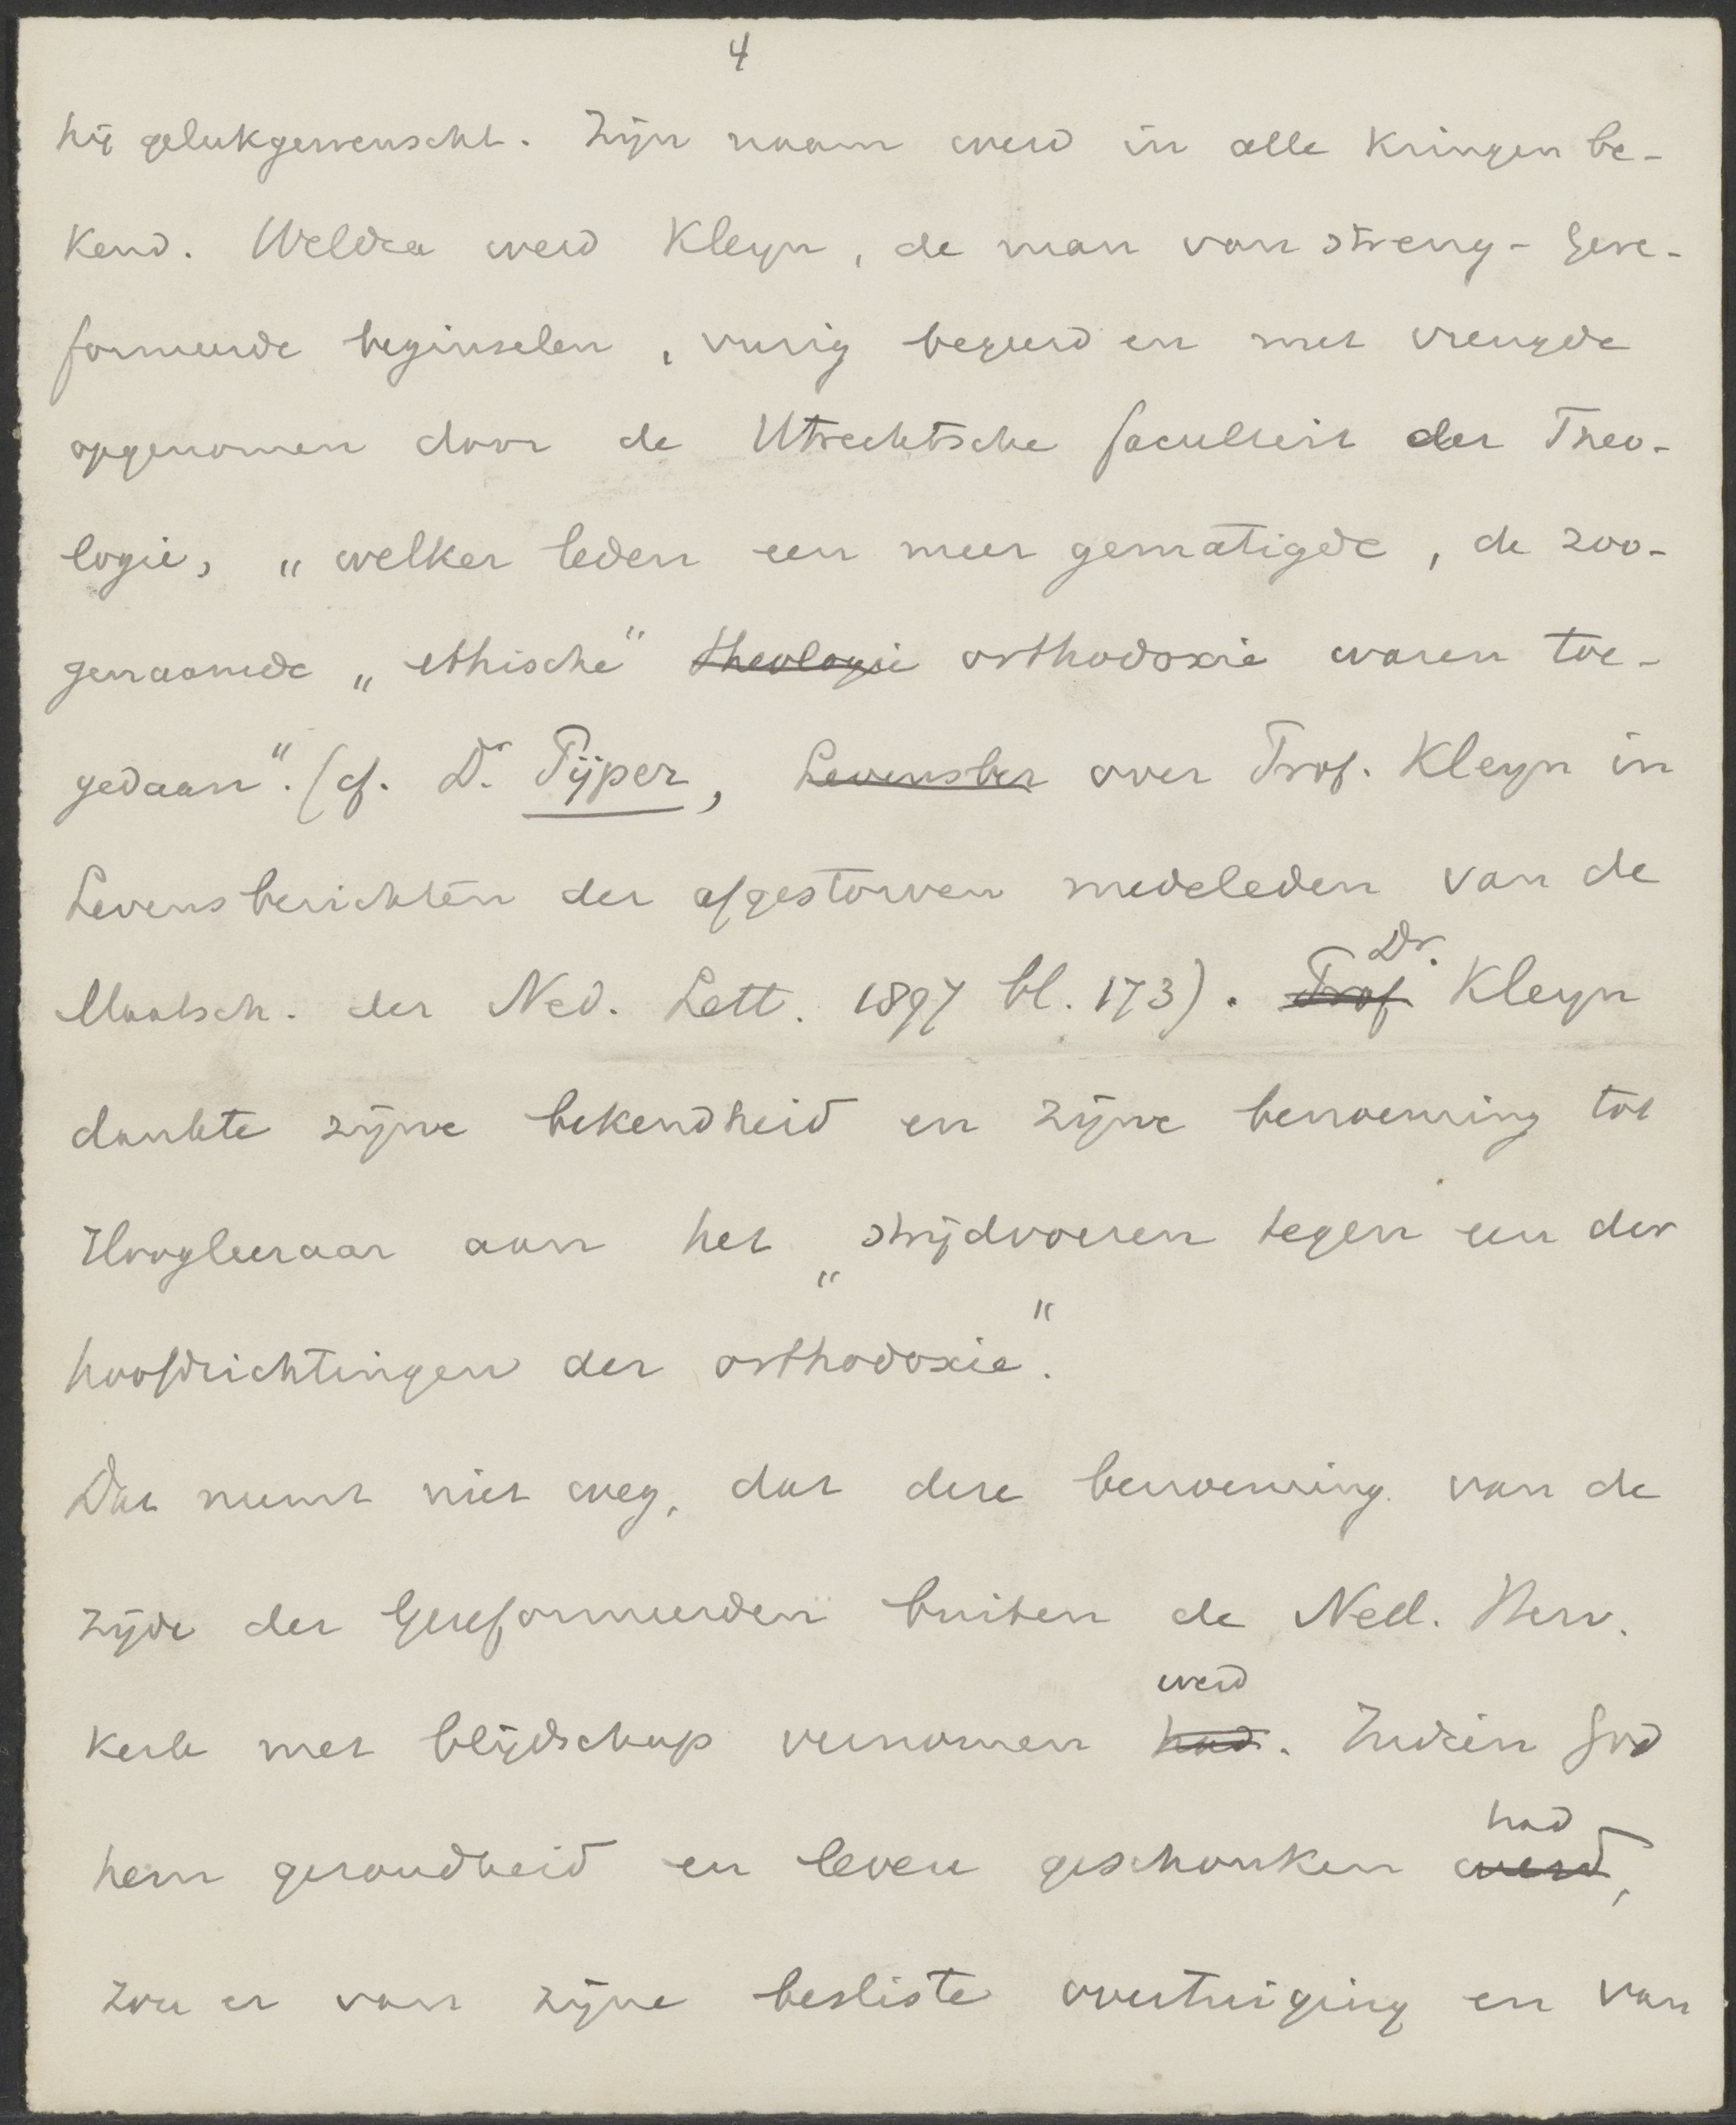 4
hij gelukgewenscht. Zijn naam werd in alle kringen be-
kend. Weldra werd Kleyn, de man van streng-Gere-
formeerde beginselen, vurig begeerd en met vreugde
opgenomen door de Utrechtsche faculteit der Theo-
logie, „welker leden een meer gematigde, de zoo-
genaamde „ethische" theologie orthodoxie waren toe-
gedaan". (cf. Dr. Pijper, Levensber over Prof. Kleyn in
Levensberichten der afgestorven medeleden van de
Maatsch. der Ned. Lett. 1897 bl. 173). Prof Dr. Kleyn
dankte zijne bekendheid en zijne benoeming tot
Hoogleeraar aan het „strijdvoeren tegen een der
hoofdrichtingen der orthodoxie".
Dat neemt niet weg, dat deze benoeming van de
zijde der Gereformeerden buiten de Nedl. Herv.
kerk met blijdschap vernomen had werd. Indien God
hem gezondheid en leven geschonken werd had,
zou er van zijne besliste overtuiging en van